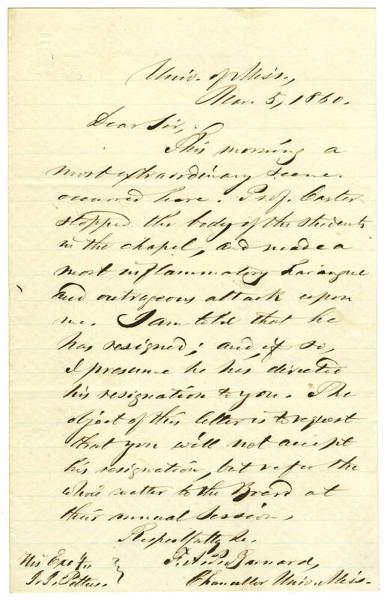 Univ. of Miss.,
Mar. 5, 1860.
Dear Sir,
This morning a
most extraordinary scene
occurred here. Prof. Carter
stopped the body of the students
in the chapel, and made a
most inflammatory harangue
and outrageous attack upon
me. I am told that he
has resigned; and if so,
I presume he has directed
his resignation to you. The
object of this letter is to request
that you will not accept
his resignation, but refer the
whole matter to the Board at
their annual session.
Respectfully &c.
F. A. P. Barnard,
Chancellor Univ. Miss.
His Excy.
J. J. Pettus.